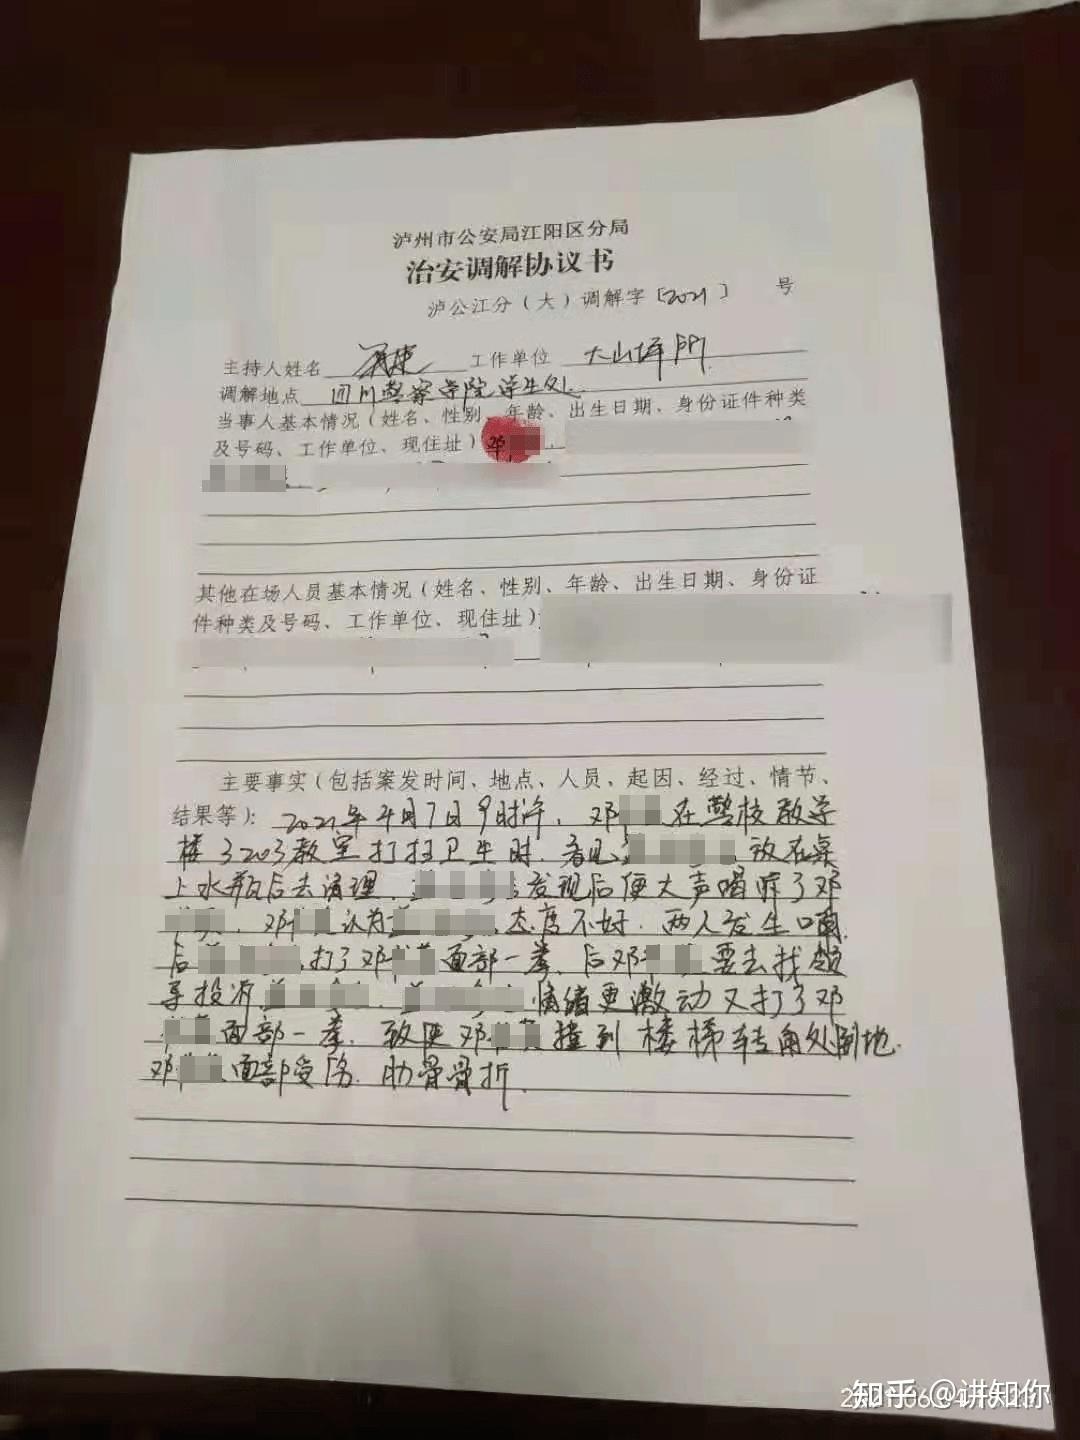 泸州市公安局江阳区分局
治安调解协议书
泸公江分（大）调解字〔2021〕 号
主持人姓名 工作单位 大山坪所
调解地点 四川警察学院学生处
当事人基本情况（姓名、性别、年龄、出生日期、身份证件种类
及号码、工作单位、现住址）邓
其他在场人员基本情况（姓名、性别、年龄、出生日期、身份证
件种类及号码、工作单位、现住址）
主要事实（包括案发时间、地点、人员、起因、经过、情节、
结果等）：2021年4月7日9时许，邓 在警校教学
楼3203教室打扫卫生时，看见 放在桌
上水瓶后去清理， 发现后便大声喝斥了邓
，邓 认为 态度不好，两人发生口角，
后 打了邓 面部一拳，后邓 要去找领
导投诉 ， 情绪更激动又打了邓
面部一拳，致使邓 撞到楼梯转角处倒地，
邓 面部受伤，肋骨骨折。
知乎 @讲知你